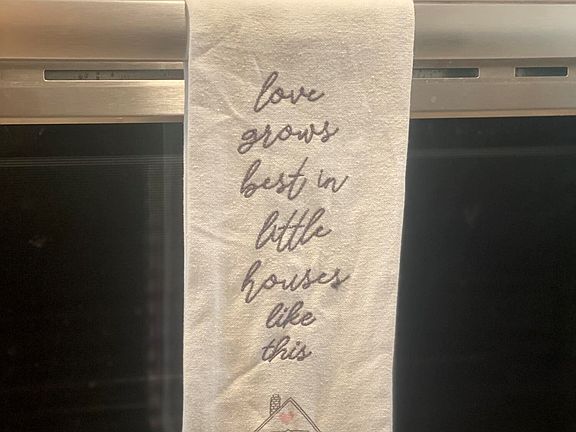 love
grows
best in
little
houses
like
this